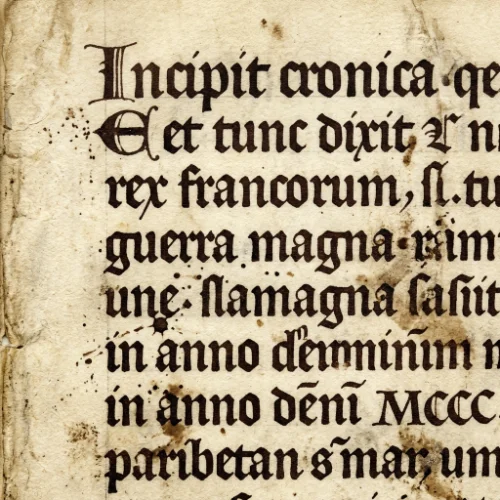 Incipit cronica · qe
E et tunc dixit ⁊ ni
rex francorum, sl. tu
guerra magna · ram
une · slamagna sasut
in anno
in anno dēnī MCCC
paribetan s̄mar, um